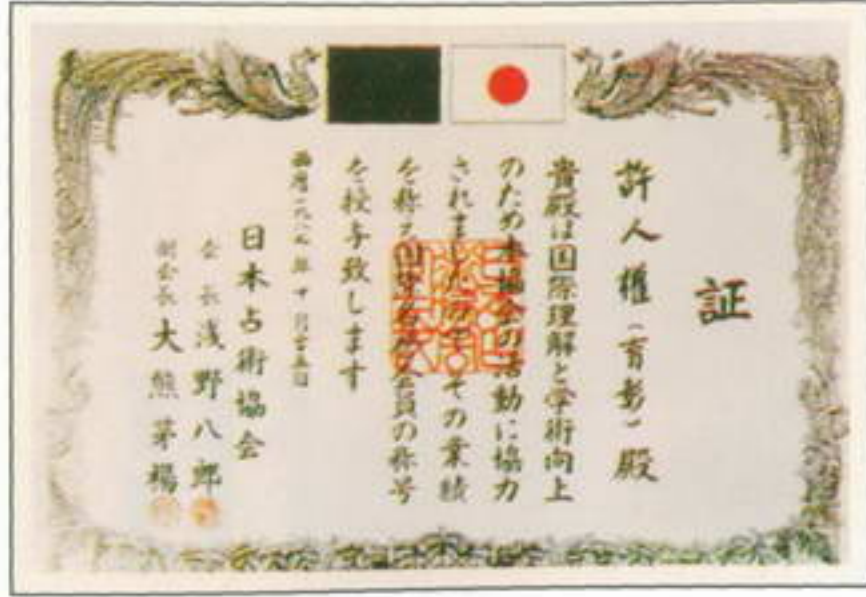 証
許人權(育彰)殿
貴殿は国際理解と学術向上
のため本協会の活動に協力
されましたのでその業績
を称え 名誉会員の称号
を授与致します
西暦一九八七年十月 五日
日本占術協会
会長 浅野八郎
副会長 大熊茅楊